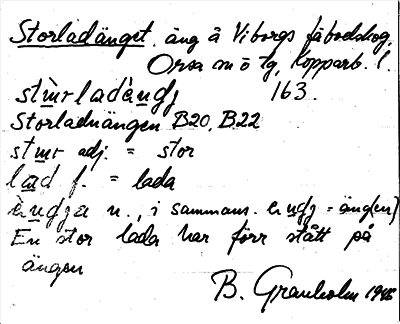 Storladänget äng å Viborgs fäbodskog,
Orsa sn ö tg, Kopparb. l.
stu̲rladäu̲dj 163.
Storladnängen B20, B22
stu̲r adj. = stor
la̲d f. = lada
n., i sammans. = äng(en)
En stor lada har förr stått på
ängen
B. Granholm 1945